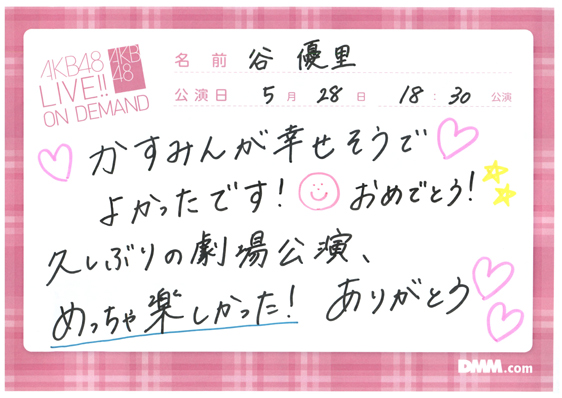 AKB48
LIVE!!
ON DEMAND
AKB
48
名前 谷 優里
公演日 5月 28日 18:30 公演
かすみんが幸せそうで
よかったです! おめでとう!
久しぶりの劇場公演、
めっちゃ楽しかった! ありがとう
DMM.com